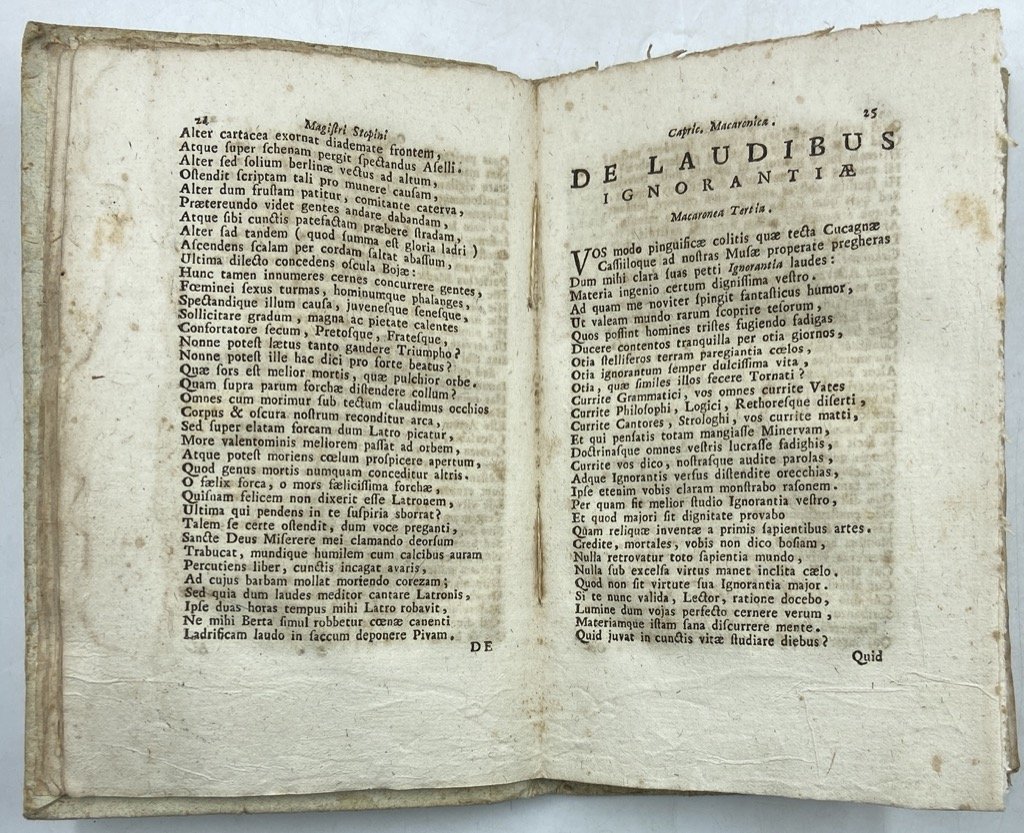 24
Magiſtri Stopini
Alter cartacea exornat diademate frontem,
Atque ſuper ſchenam pergit ſpectandus Aſelli.
Alter ſed ſolium berlinæ vectus ad altum,
Oſtendit ſcriptam tali pro munere cauſam,
Alter dum fruſtam patitur, comitante caterva,
Prætereundo videt gentes andare dabandam,
Atque ſibi cunctis patefactam præbere ſtradam,
Alter ſad tandem ( quod ſumma eſt gloria ladri )
Aſcendens ſcalam per cordam ſaltat abaſſum,
Ultima dilecto concedens oſcula Bojæ:
Hunc tamen innumeres cernes concurrere gentes,
Fœminei ſexus turmas, hominumque phalanges,
Spectandique illum cauſa, juveneſque ſeneſque,
Sollicitare gradum, magna ac pietate calentes
Confortatore ſecum, Pretoſque, Frateſque,
Nonne poteſt lætus tanto gaudere Triumpho?
Nonne poteſt ille hac dici pro ſorte beatus?
Quæ ſors eſt melior mortis, quæ pulchior orbe.
Quam ſupra parum forchæ diſtendere collum?
Omnes cum morimur ſub tectum claudimus occhios
Corpus & oſcura noſtrum reconditur arca,
Sed ſuper elatam forcam dum Latro picatur,
More valentominis meliorem paſſat ad orbem,
Atque poteſt moriens cœlum proſpicere apertum,
Quod genus mortis numquam conceditur altris.
O fælix forca, o mors fæliciſſima forchæ,
Quiſnam felicem non dixerit eſſe Latronem,
Ultima qui pendens in te ſuſpiria sborrat?
Talem ſe certe oſtendit, dum voce preganti,
Sancte Deus Miſerere mei clamando deorſum
Trabucat, mundique humilem cum calcibus auram
Percutiens liber, cunctis incagat avaris,
Ad cujus barbam mollat moriendo corezam;
Sed quia dum laudes meditor cantare Latronis,
Ipſe duas horas tempus mihi Latro robavit,
Ne mihi Berta ſimul robbetur cœnæ canenti
Ladrificam laudo in ſaccum deponere Pivam.
DE
Capric. Macaronica.
25
DE LAUDIBUS
IGNORANTIÆ
Macaronea Tertia.
VOS modo pinguificæ colitis quæ tecta Cucagnæ
Caſſiiloque ad noſtras Muſæ properate pregheras
Dum mihi clara ſuas petti Ignorantia laudes:
Materia ingenio certum digniſſima veſtro.
Ad quam me noviter ſpingit fantaſticus humor,
Ut valeam mundo rarum ſcoprire teſorum,
Quos poſſint homines triſtes fugiendo fadigas
Ducere contentos tranquilla per otia giornos,
Otia ſtelliferos terram paregiantia cœlos,
Otia ignorantum ſemper dulciſſima vita,
Otia, quæ ſimiles illos fecere Tornati?
Currite Grammatici, vos omnes currite Vates
Currite Philoſophi, Logici, Rethoreſque diſerti,
Currite Cantores, Strologhi, vos currite matti,
Et qui penſatis totam mangiaſſe Minervam,
Doctrinaſque omnes veſtris lucraſſe fadighis,
Currite vos dico, noſtraſque audite parolas,
Adque Ignorantis verſus diſtendite orecchias,
Ipſe etenim vobis claram monſtrabo raſonem.
Per quam fit melior ſtudio Ignorantia veſtro,
Et quod majori ſit dignitate provabo
Quam reliquæ inventæ a primis ſapientibus artes.
Credite, mortales, vobis non dico boſiam,
Nulla retrovatur toto ſapientia mundo,
Nulla ſub excelſa virtus manet inclita cælo.
Quod non ſit virtute ſua Ignorantia major.
Si te nunc valida, Lector, ratione docebo,
Lumine dum vojas perfecto cernere verum,
Materiamque iſtam ſana diſcurrere mente.
Quid juvat in cunctis vitæ ſtudiare diebus?
Quid